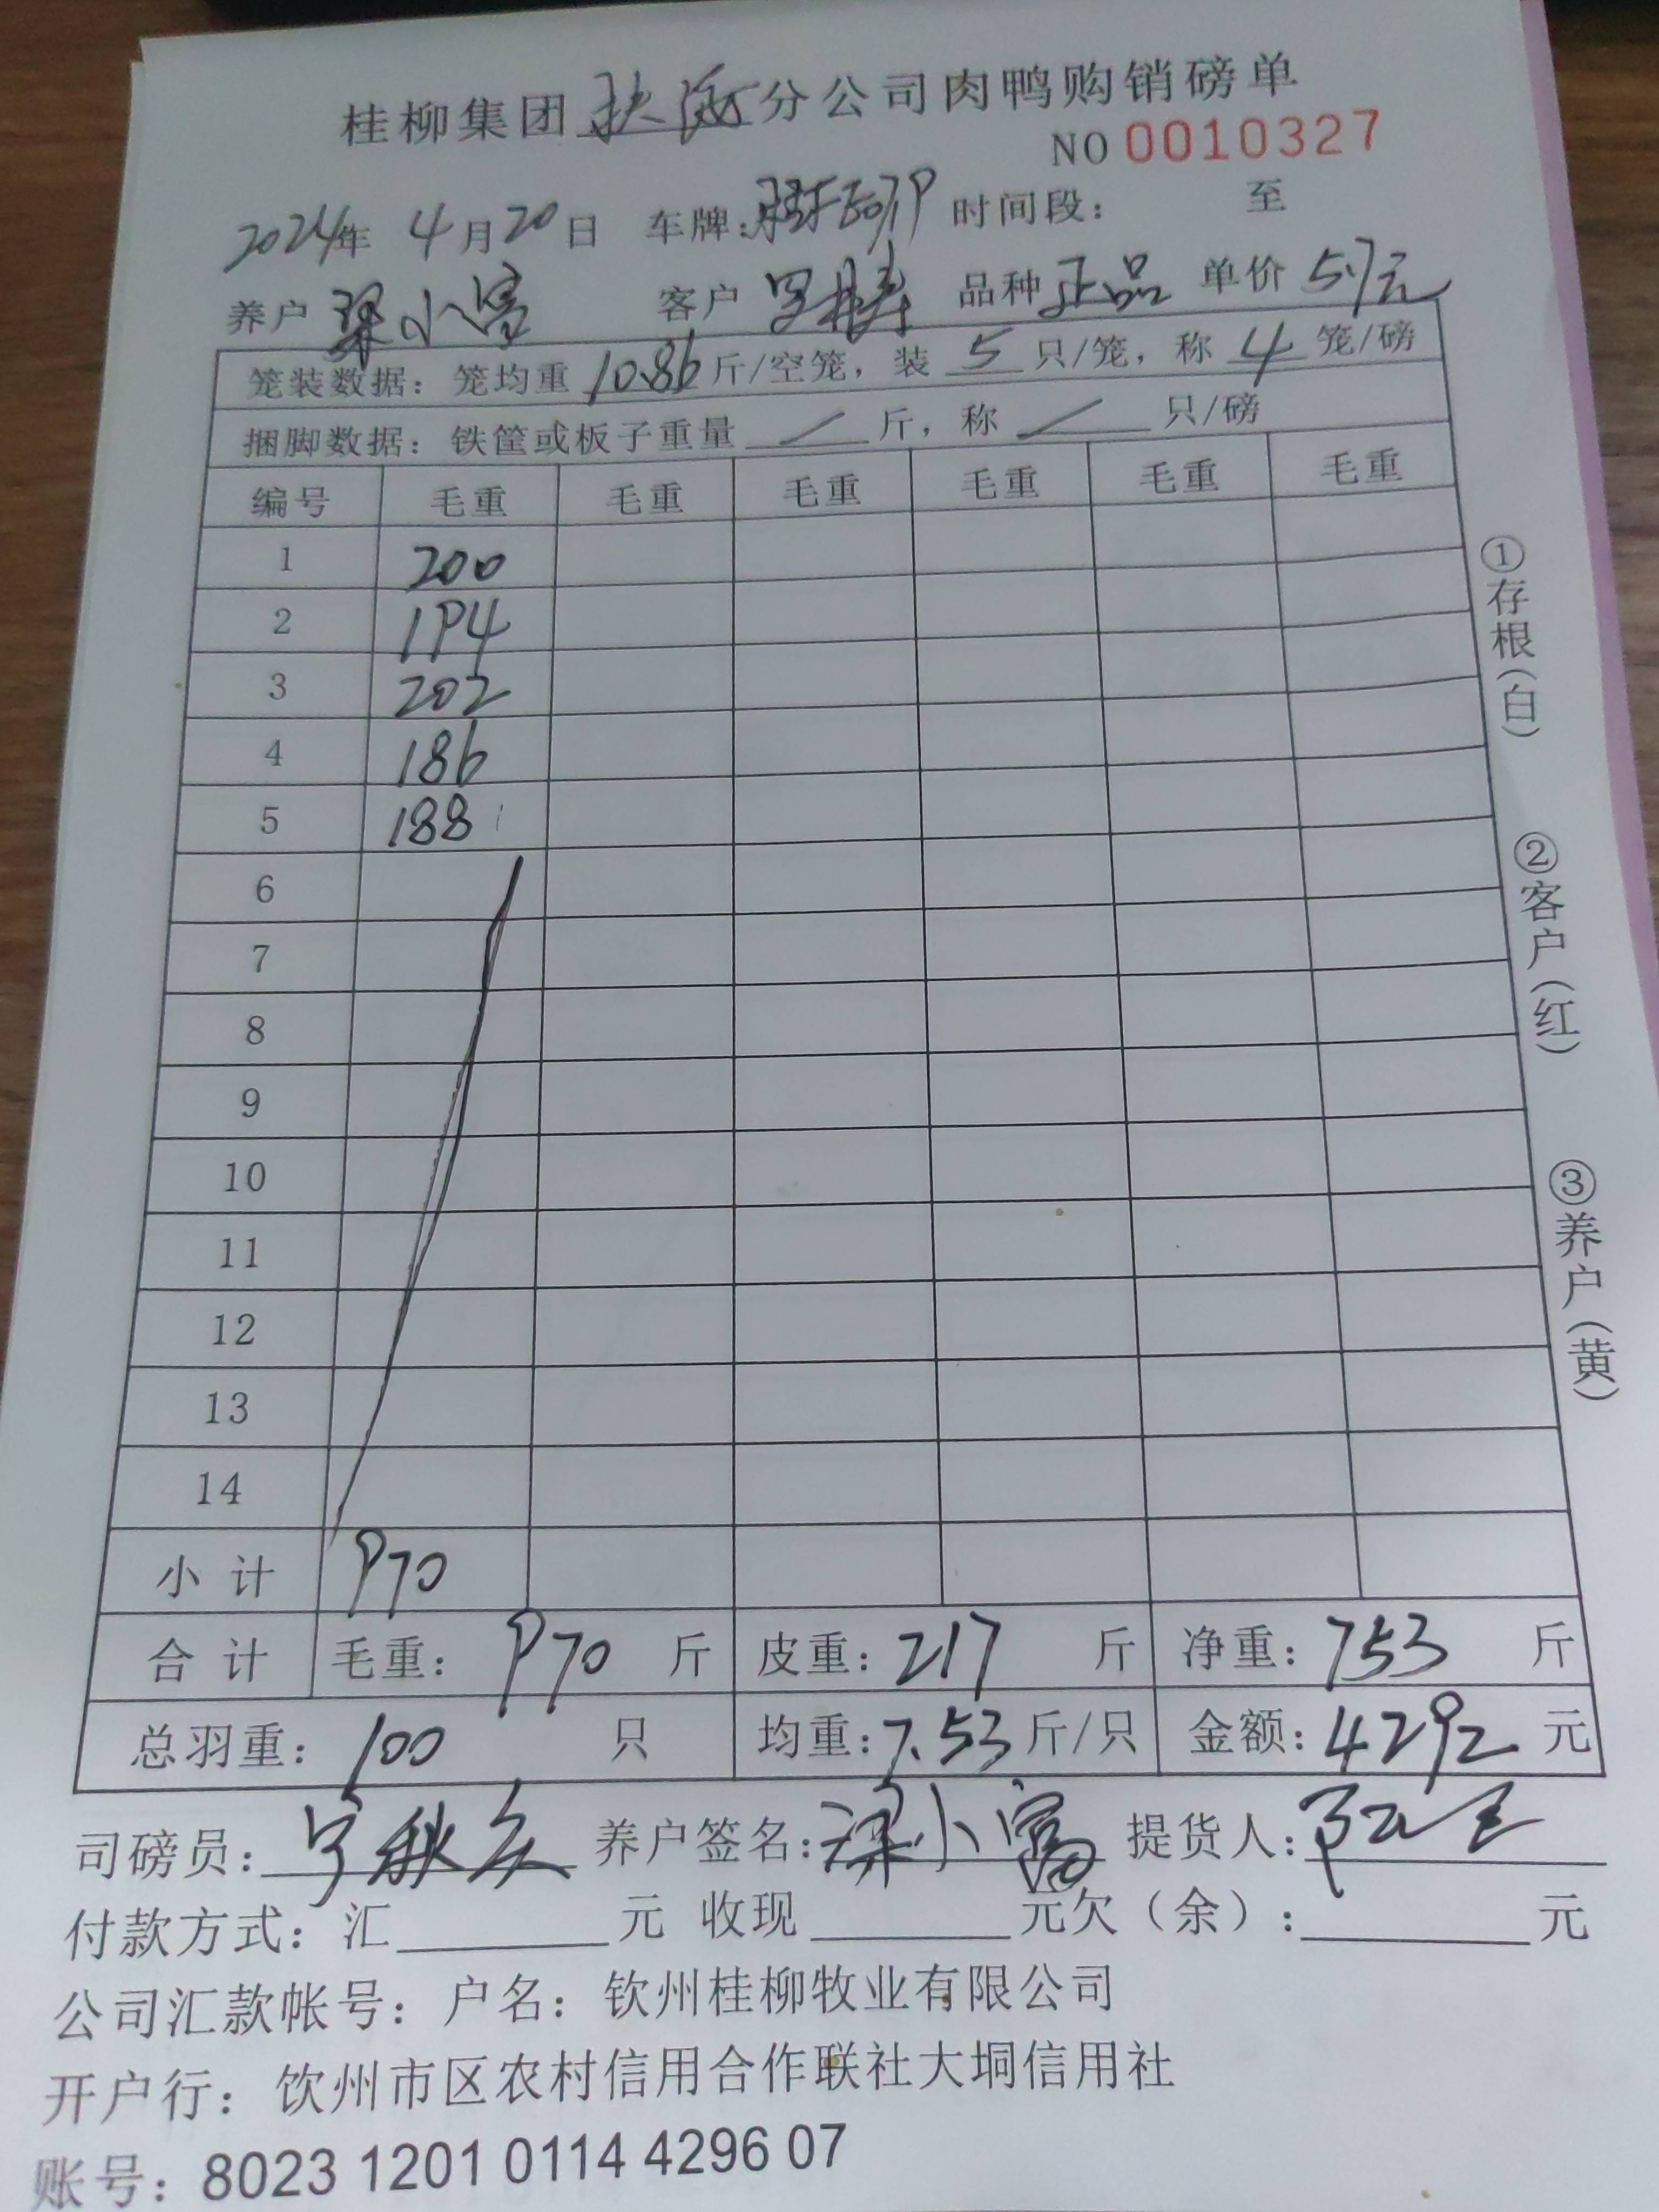 桂柳集团 扶 分公司肉鸭购销磅单
NO 0010327
2024年 4月20日 车牌: 时间段: 至
养户 梁小富 客户 品种 正品 单价 5.7元
笼装数据:笼均重 10.86 斤/空笼,装 5 只/笼,称 4 笼/磅
捆脚数据:铁筐或板子重量 / 斤,称 / 只/磅
编号 毛重 毛重 毛重 毛重 毛重 毛重
1 200
2 194
3 202
4 186
5 188
6
7
8
9
10
11
12
13
14
小计 970
合计 毛重: 970 斤 皮重: 217 斤 净重: 753 斤
总羽重: 100 只 均重: 7.53 斤/只 金额: 4292 元
司磅员: 宁秋 养户签名: 梁小富 提货人:
付款方式:汇 元 收现 元欠(余): 元
公司汇款帐号:户名:钦州桂柳牧业有限公司
开户行:饮州市区农村信用合作联社大垌信用社
账号:8023 1201 0114 4296 07
①存根(白)
②客户(红)
③养户(黄)